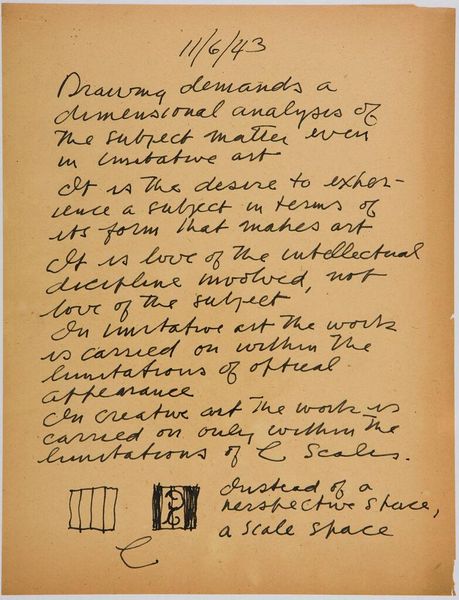 11/6/43
Drawing demands a
dimensional analysis of
the subject matter even
in imitative art
It is the desire to exper-
ience a subject in terms of
its form that makes art
It is love of the intellectual
discipline involved, not
love of the subject
In imitative art the work
is carried on within the
limitations of optical
appearance
In creative art the work is
carried on only within the
limitations of C Scales.
Instead of a
perspective space,
a scale space
C